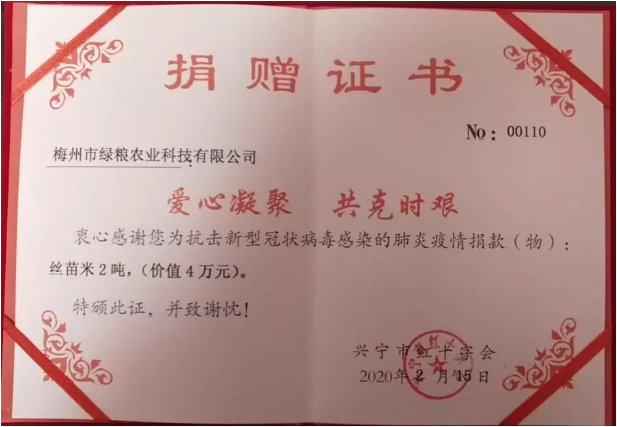 捐赠证书
No: 00110
梅州市绿粮农业科技有限公司
爱心凝聚 共克时艰
衷心感谢您为抗击新型冠状病毒感染的肺炎疫情捐款(物):
丝苗米2吨,(价值4万元)。
特颁此证,并致谢忱!
兴宁市红十字会
2020年2月15日